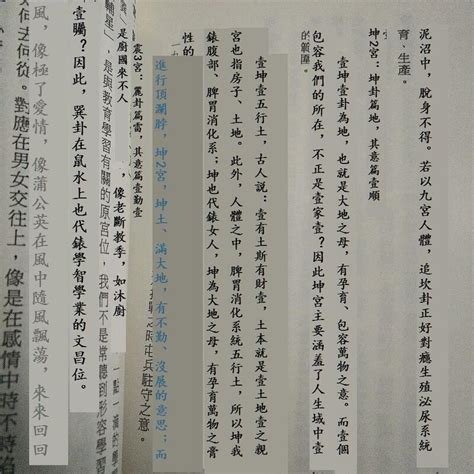 泥沼中，脫身不得。若以九宮人體，追坎卦正好對癮生殖泌尿系統
育、生產。
坤2宮：坤卦篇地，其意篇壹順
壹坤壹卦為地，也就是大地之母，有孕育、包容萬物之意。而壹個
包容我們的所在，不正是壹家壹？因此坤宮主要涵蓋了人生域中壹
的範圍。
壹坤壹五行土，古人說：壹有土斯有財壹，土本就是壹土地壹之親
宮也指房子、土地。此外，人體之中，脾胃消化系統五行土，所以坤我
錶腹部、脾胃消化系；坤也代錶女人，坤為大地之母，有孕育萬物之骨
性的
進行頂瀾脖，坤2宮，坤土、滿大地，有不勤、沒展的意思；而
震3宮：麗卦篇雷，其意篇壹勤壹
兵駐守之意。
，像老斷教季，如沐廚
是廚國來不人
輔星」，是與教育學習有關的原宮位，我們不是常聽到形容學習
壹臅？因此，巽卦在鼠水上也代錶學智學業的文昌位。
風，像極了愛情，像蒲公英在風中隨風飄蕩，來來回回
何去何從。對應在男女交往上，像是在感情中時不時陷